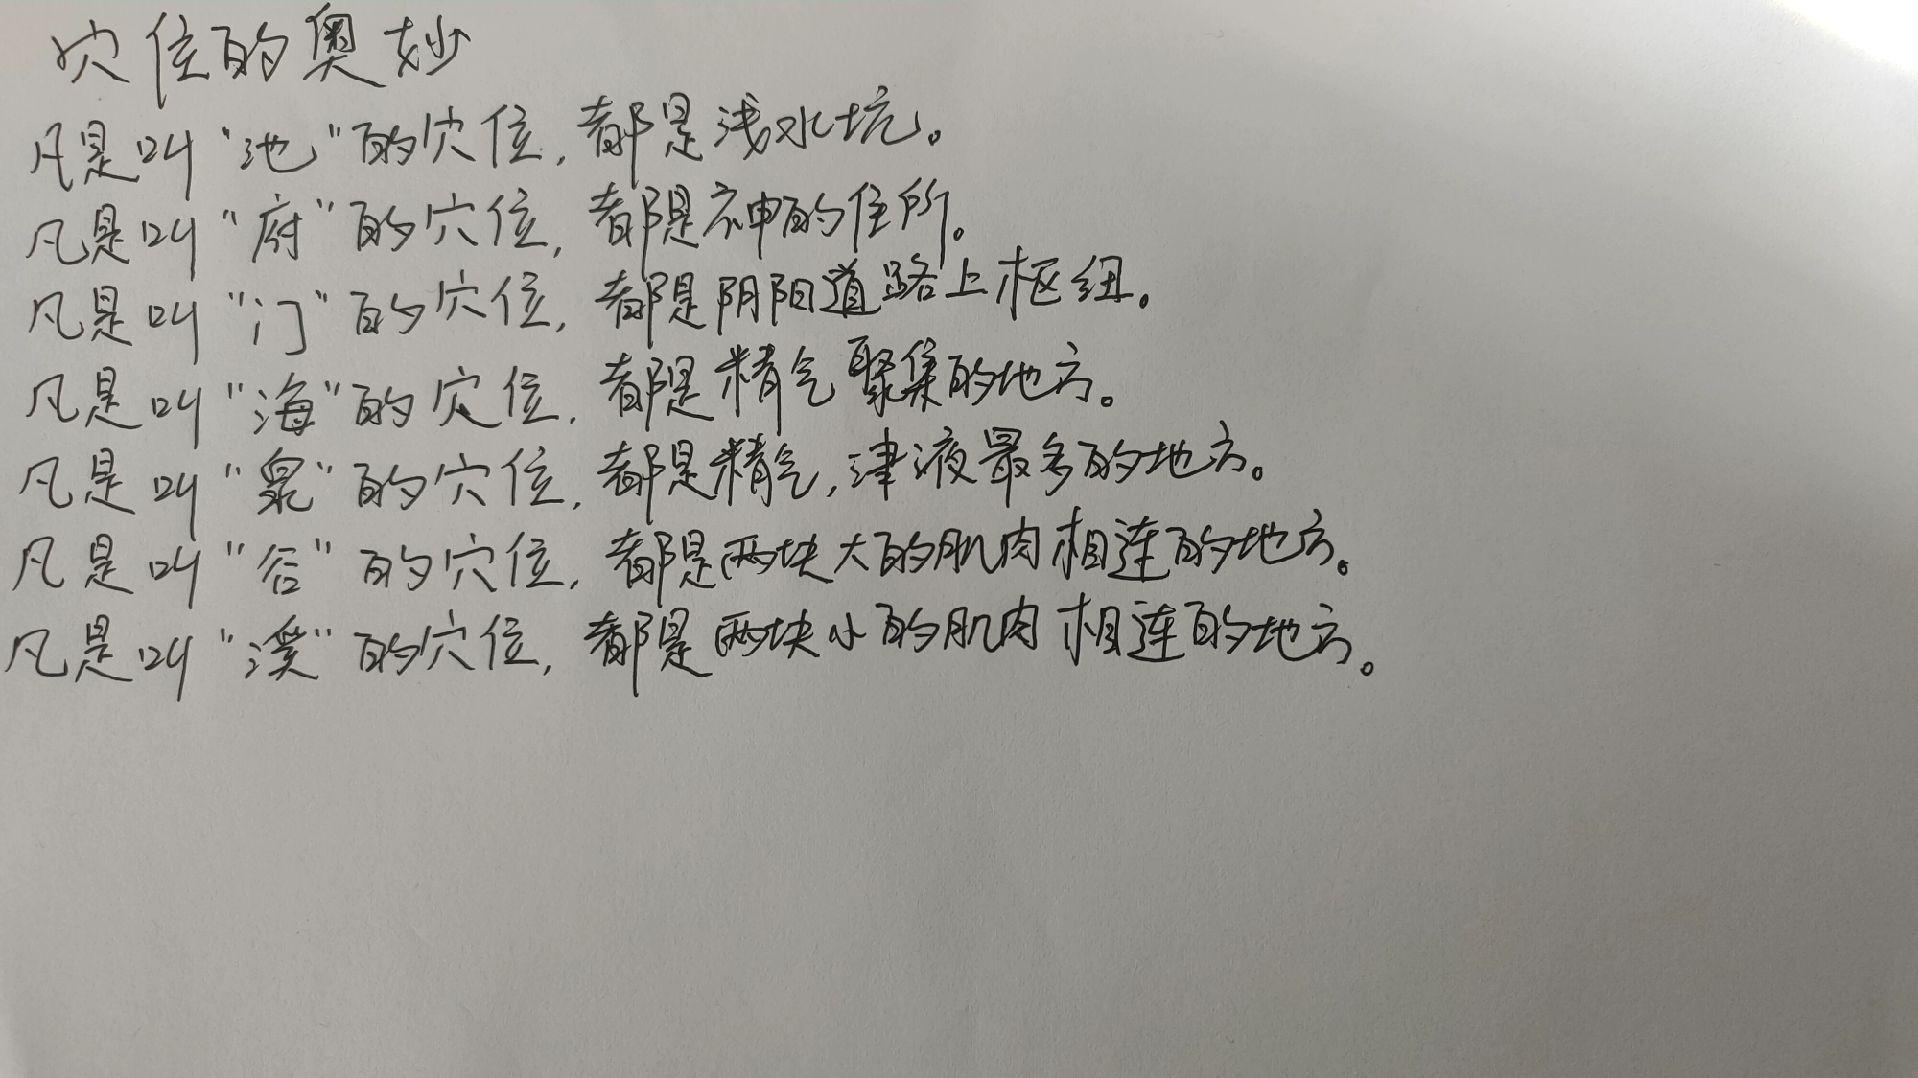 穴位的奥妙
凡是叫“池”的穴位，都是浅水坑。
凡是叫“府”的穴位，都是神的住所。
凡是叫“门”的穴位，都是阴阳道路上枢纽。
凡是叫“海”的穴位，都是精气聚集的地方。
凡是叫“泉”的穴位，都是精气，津液最多的地方。
凡是叫“谷”的穴位，都是两块大的肌肉相连的地方。
凡是叫“溪”的穴位，都是两块小的肌肉相连的地方。